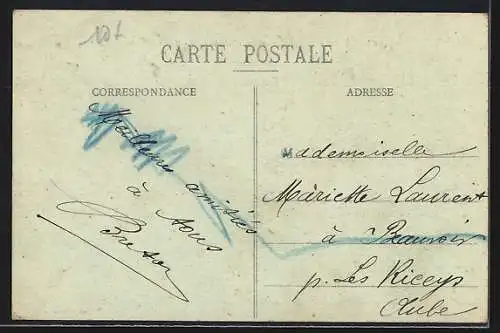 CARTE POSTALE
CORRESPONDANCE
ADRESSE
Meilleures amitiés
à tous
Mademoiselle
Mariette Laurent
à Beauvoir
p. Les Riceys
Aube